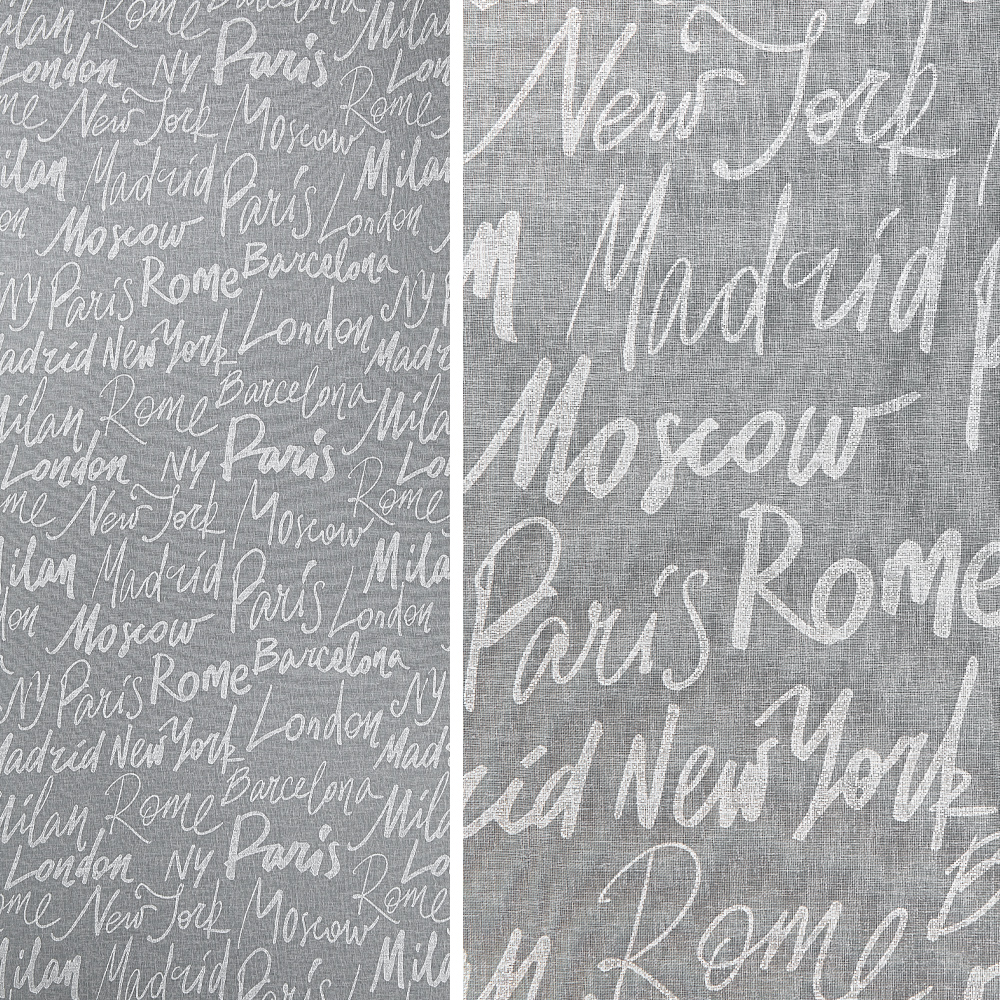 Milan Rome Barcelona Milan
London NY Paris London
Rome New York Moscow Rome
Milan Madrid Paris Milan
London Moscow London
NY Paris Rome Barcelona NY
Madrid New York London Madrid
Milan Rome Barcelona Milan
London NY Paris
Rome New York Moscow Rome
Milan Madrid Paris Milan
London Moscow London
NY Paris Rome Barcelona NY
Madrid New York London Madrid
Milan Rome Barcelona Milan
London NY Paris
Rome New York Moscow Rome
Milan Madrid Paris Milan
New York
Madrid
Moscow
Paris Rome
New York
Rome